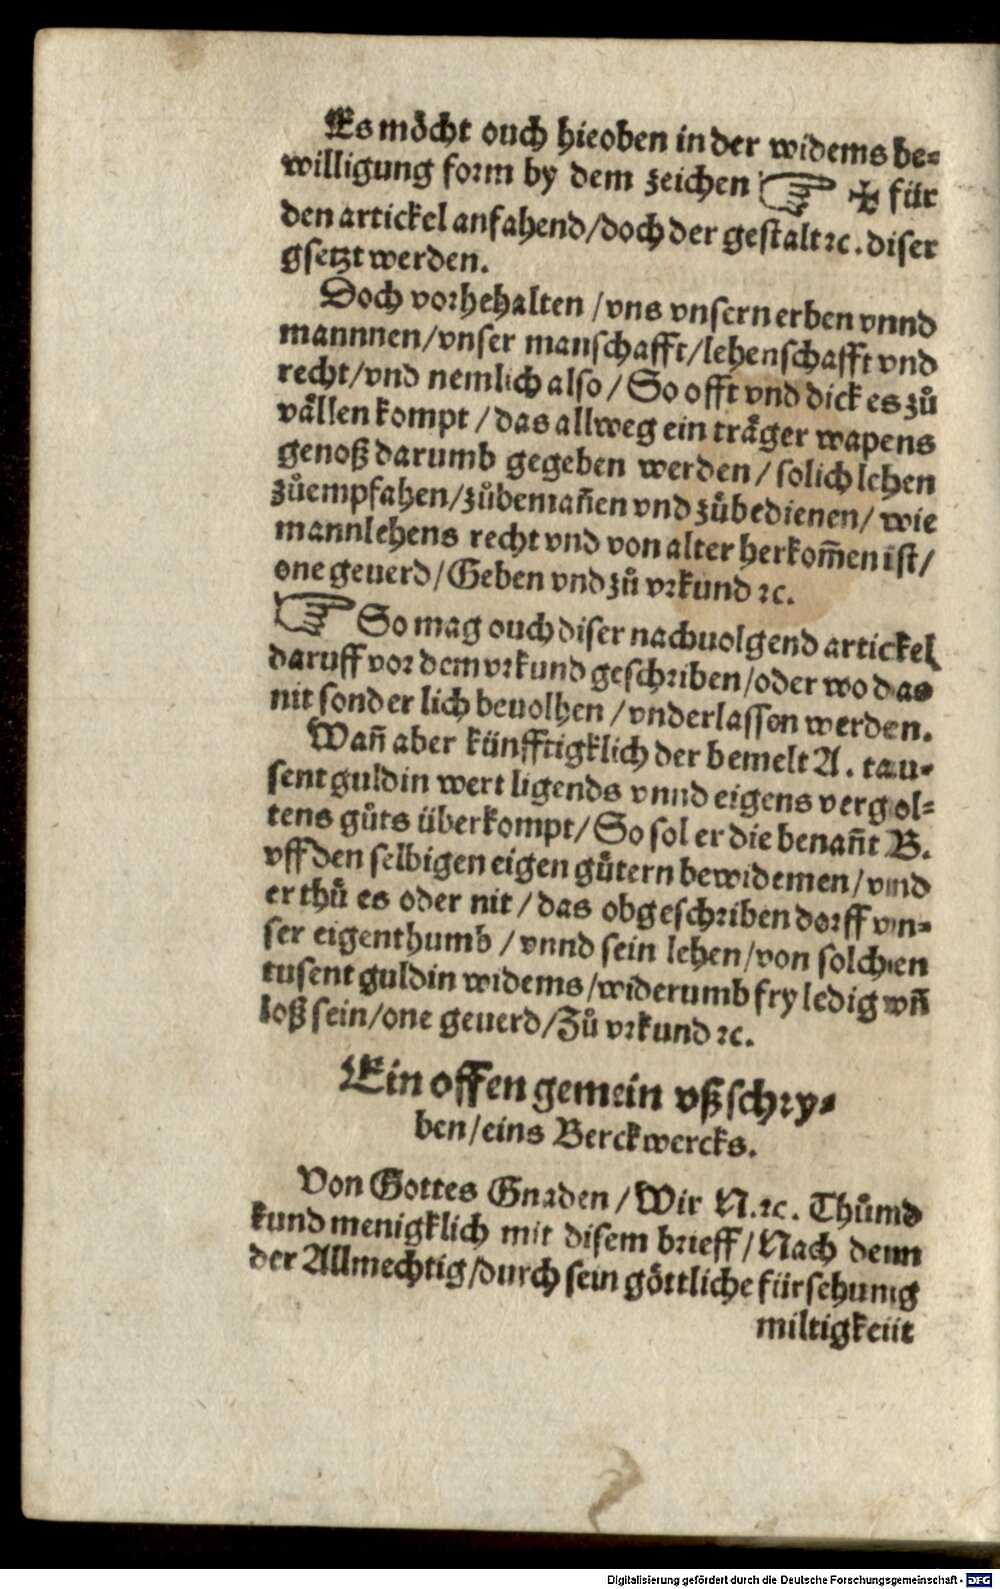 Es möcht ouch hieoben in der widems be=
willigung form by dem zeichen ☞ ✠ für
den artickel anfahend/doch der gestalt ꝛc. diser
gsetzt werden.
Doch vorhehalten /vns vnsern erben vnnd
mannnen/vnser manschafft/lehenschafft vnd
recht/vnd nemlich also / So offt vnd dick es zů
vällen kompt / das allweg ein träger wapens
genoß darumb gegeben werden / solich lehen
zůempfahen/zůbemañen vnd zůbedienen/ wie
mannlehens recht vnd von alter herkom̃en ist/
one geuerd/ Geben vnd zů vrkund ꝛc.
☞ So mag ouch diser nachuolgend artickel
daruff vor dem vrkund geschriben/oder wo das
nit sonderlich beuolhen / vnderlassen werden.
Wañ aber künfftigklich der bemelt A. tau=
sent guldin wert ligends vnnd eigens vergol=
tens gůts überkompt/ So sol er die benañt B.
vff den selbigen eigen gůtern bewidemen/ vnd
er thů es oder nit / das obgeschriben dorff vn=
ser eigenthumb / vnnd sein lehen/von solchen
tusent guldin widems/widerumb fry ledig vñ
loß sein/one geuerd/Zů vrkund ꝛc.
Ein offen gemein vßschry=
ben/eins Berckwercks.
Von Gottes Gnaden / Wir N.ꝛc. Thůnd
kund menigklich mit disem brieff/ Nach dem
der Allmechtig/durch sein göttliche fürsehung
miltigkeit
Digitalisierung gefördert durch die Deutsche Forschungsgemeinschaft - DFG